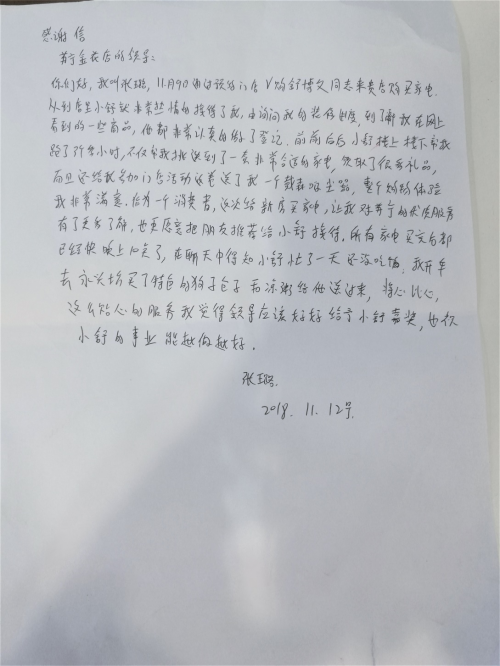 感谢信
苏宁金花店的领导：
你们好，我叫张璐，11月9日通过预约门店V购舒博文同志来贵店购买家电
从到店里小舒就非常热情的接待了我，由询问我的装修进度，到了解我在网上
看到的一些商品，他都非常认真的做了登记．前前后后小舒楼上楼下帮我
跑了不少小时，不仅帮我挑选到了一套非常合适的家电，领取了很多礼品，
而且还给我参加门店活动返卷送了我一个戴森吸尘器，整个购物体验
我非常满意．作为一个消费者，这次给新房买家电，让我对苏宁的优质服务
有了更多了解，也更愿意把朋友推荐给小舒接待．所有家电买完后都
已经快晚上10点了，在聊天中得知小舒忙了一天还没吃饭．我开车
去永兴坊买了特色的狗子包子和凉粥给他送过来，将心比心，
这么贴心的服务我觉得领导应该好好给予小舒嘉奖，也祝
小舒的事业能越做越好．
张璐．
2018．11．12号．